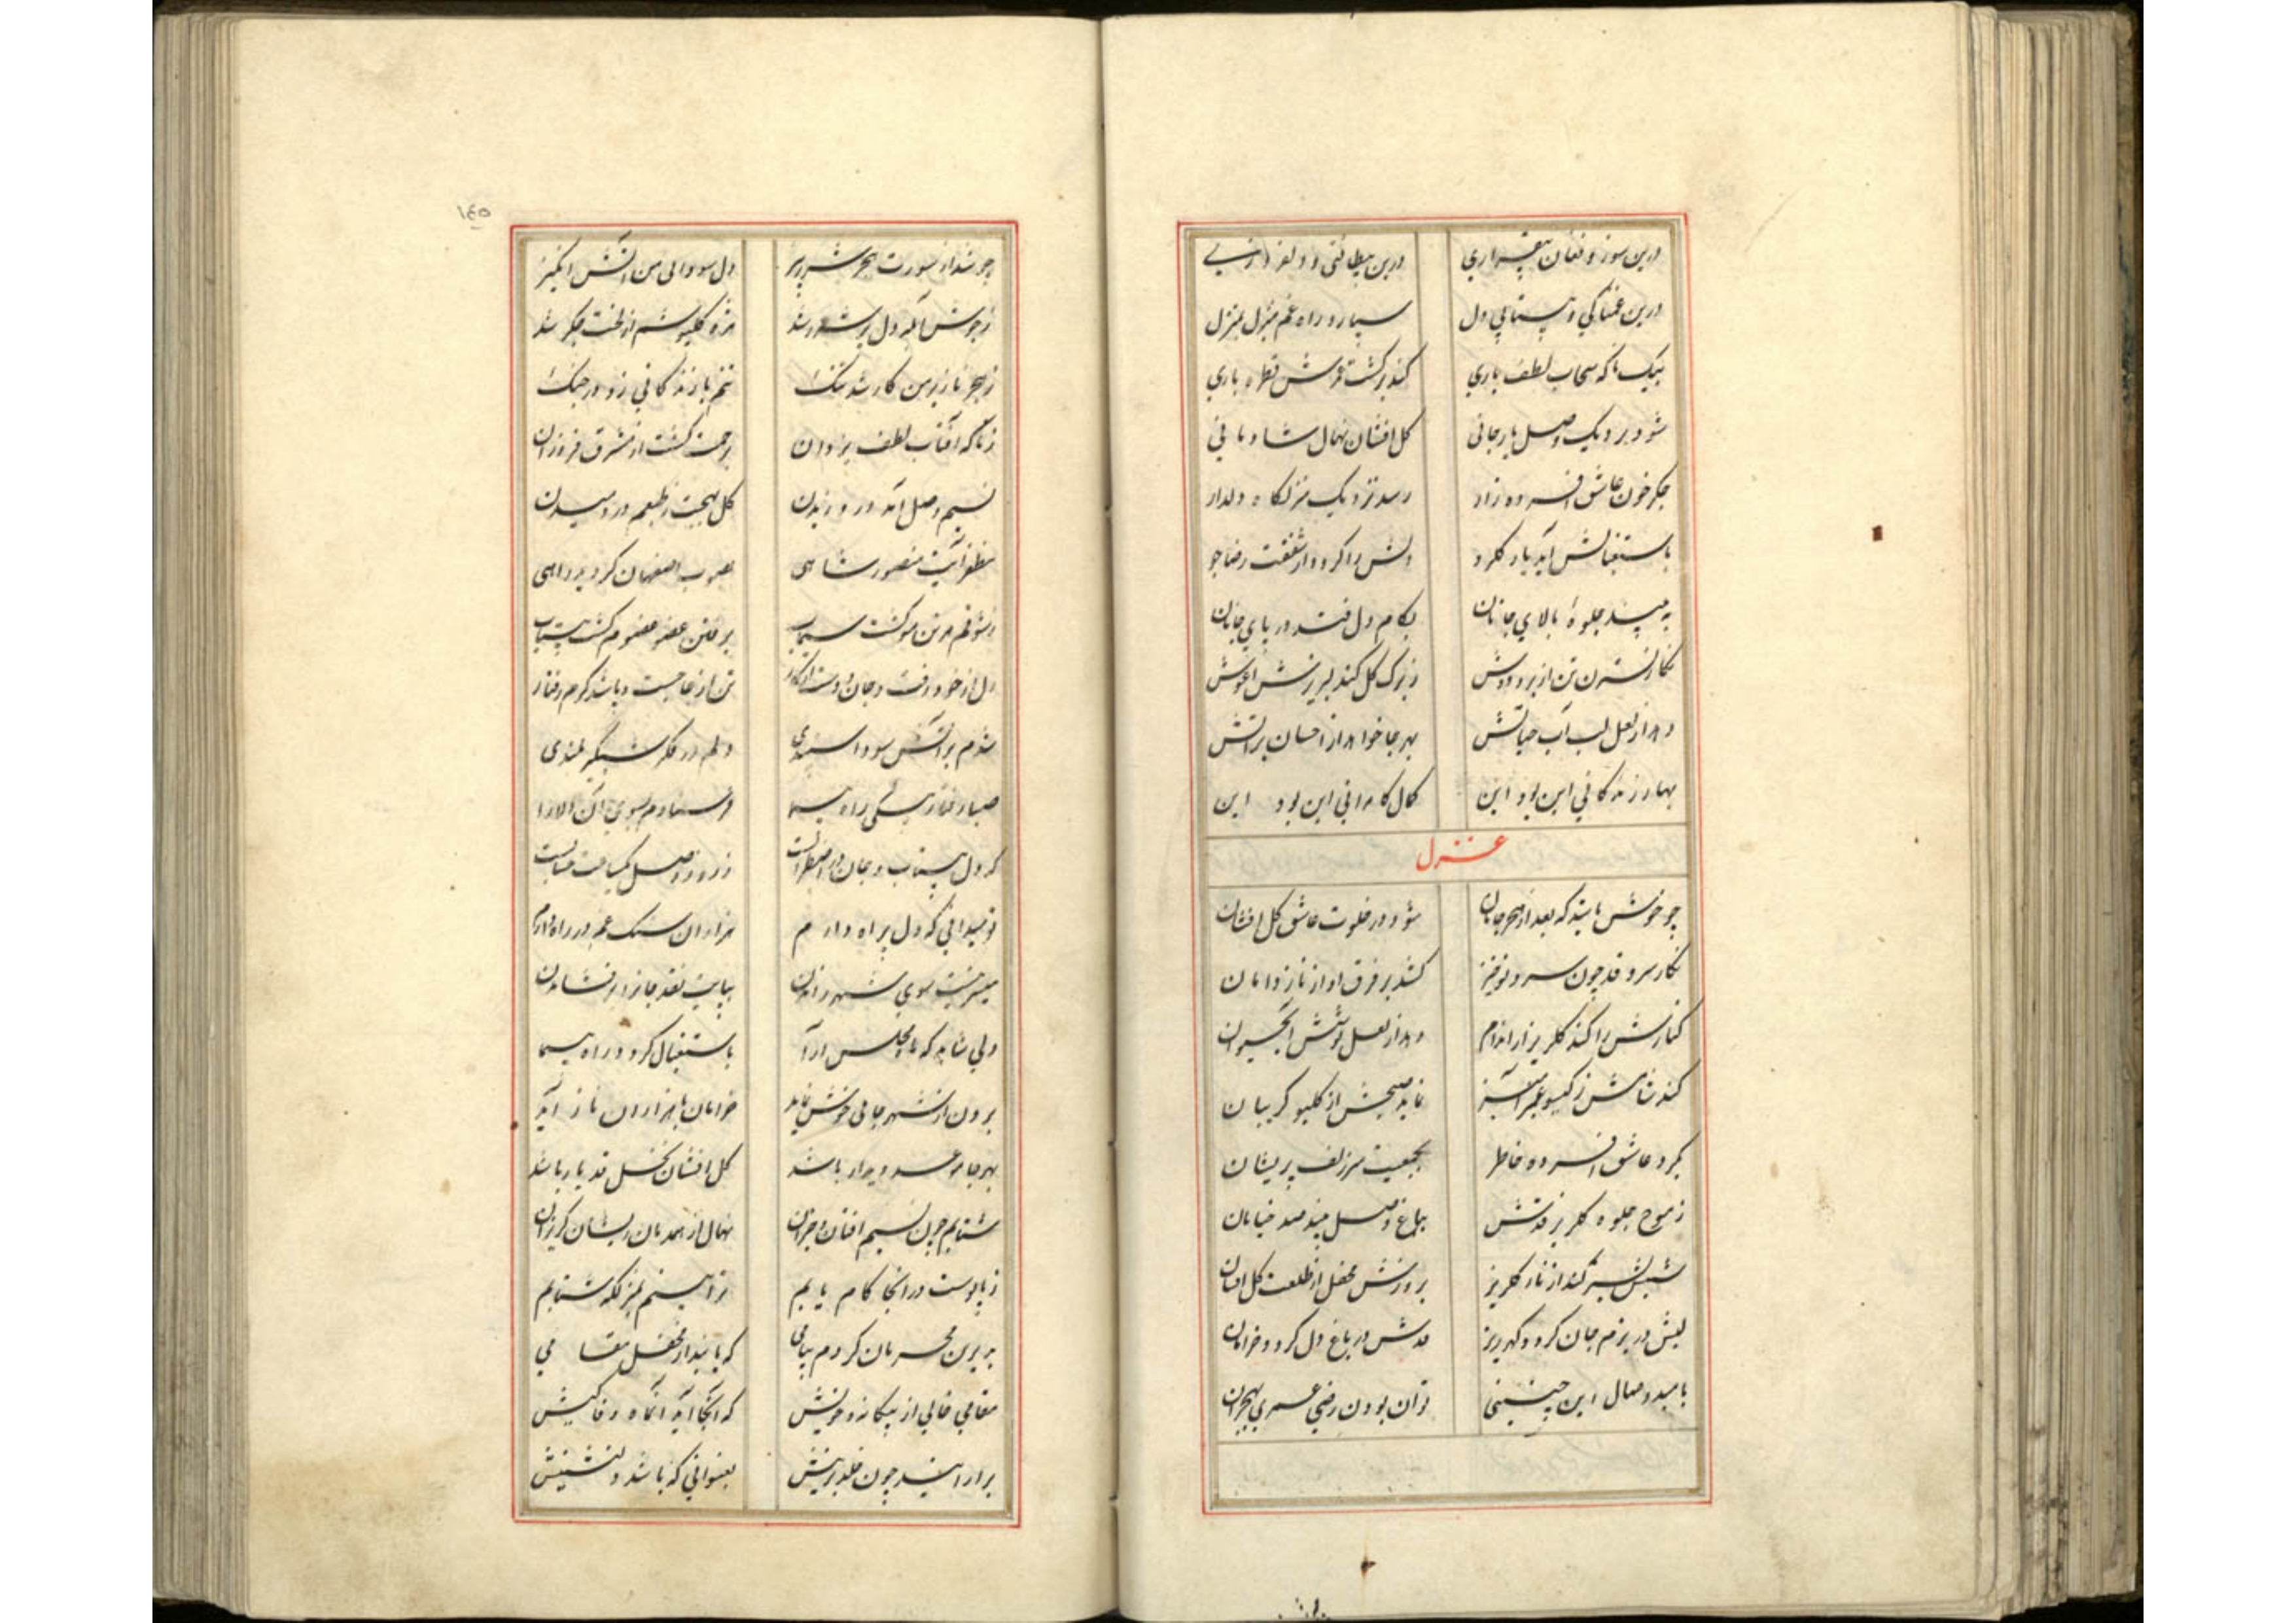 درین سوز و فغان بیقراری درین بیطاقتی و
درین غمناکی و بیتابی دل سپارد راه غم منزل بمنزل
بیک ناکه سحاب لطف باری کند بر کشت قطره باری
شود نزدیک وصل یار جانی کل افشان نهال شادمانی
جکر خون عاشق افسرده زار رسد نزدیک منزلکاه دلدار
باستقبالش آید یار کلرو دلش را کردد از شفقت رضا جو
به بیند جلوهٔ بالای جانان بکام دل فتد در پای جانان
نکار نسترن تن از بر و دوش ز برک کل کند لبریزش اغوش
دهد از لعل لب آب حیاتش بهر جا خواهد از احسان براتش
بهار زندکانی این بود این کمال کامرانی این بود این
غزل
چو خوش باشد که بعد از هجر جانان شود در خلوت عاشق کل افشان
نکار سرو قد چون سرو نوخیز کشد بر فرق او از ناز دامان
کنارش را کند کلریز از اندام دهد از لعل نوشش آبحیوان
کند شامش ز کیسو عنبر آمیز نماید صبحش از کلبو کریبان
بکرد عاشق افسرده خاطر بجمعیت سر زلف پریشان
ز موج جلوه کلریز قدش بباغ وصل بیند صد خیابان
شبش بستر کند از ناز کلریز بروزش محفل از طلعت کل افشان
لبش در بزم جان کردد کهر ریز قدش در باغ دل کردد خرامان
بامید وصال این چنینی توان بودن رضی عمری بهجران
١٤٥
چو شد از شورت هجر شرر ریز دل سودائی من آتش انکیز
ز جوش آبله دل پر شرر شد مژه کلپوشم از لخت جکر شد
ز هجر نازنین من کار شد تنک تنم با زندکانی زد در جنک
ز ناکه آفتاب لطف یزدان برحمت کشت از مشرق فروزان
نسیم وصل آمد در وزیدن کل بهجت ز طبعم در دمیدن
مظفر آیت منصور شاهی بصوب اصفهان کردید راهی
ز شوقم هر تن مو کشت سیماب برفتن عضو عضوم کشت بیتاب
دل از خود رفت و جان تن از جا جست و پا شد کرم رفتار
شدم بر آتش سودا سپندی دلم در فکر شبکیر بلندی
صبا رفتار پیکی راه پیما فرستادم بسوی آن دلارا
که دل بیتاب و جان در اضطرابست ز روز وصل
تو میدانی که دل پر آه دارم هزاران سنک غم در راه دارم
میسر نیست سوی شهر راندن بپایت نقد جانرا بر فشاندن
ولی شاید که ماه مجلس آرا باستقبال کردد راه پیما
برون از شهر جائی خوش نماید خرامان با هزاران ناز آید
بهر جا موعد دیدار باشد کل افشان نخل قد یار باشد
شتابم چون نسیم افتان و خیزان نهان از همدمان ریشان کریزان
ز پابوست در آنجا کام یابم ترا بینم بمنزلکه شتابم
بدیرین محرمان کردم پیامی که یابند از محفل مقامی
مقامی خالی از بیکانه و خویش که آنجا آید آنماه وفا کیش
بیارایند چون خلد برینش بعنوانی که باشد دلنشینش